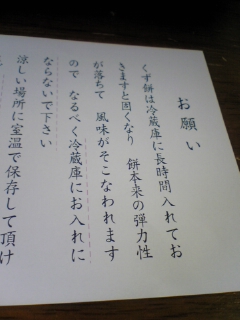 お願い
くず餅は冷蔵庫に長時間入れてお
きますと固くなり　餅本来の弾力性
が落ちて　風味がそこなわれます
ので　なるべく冷蔵庫にお入れに
ならないで下さい
涼しい場所に室温で保存して頂け